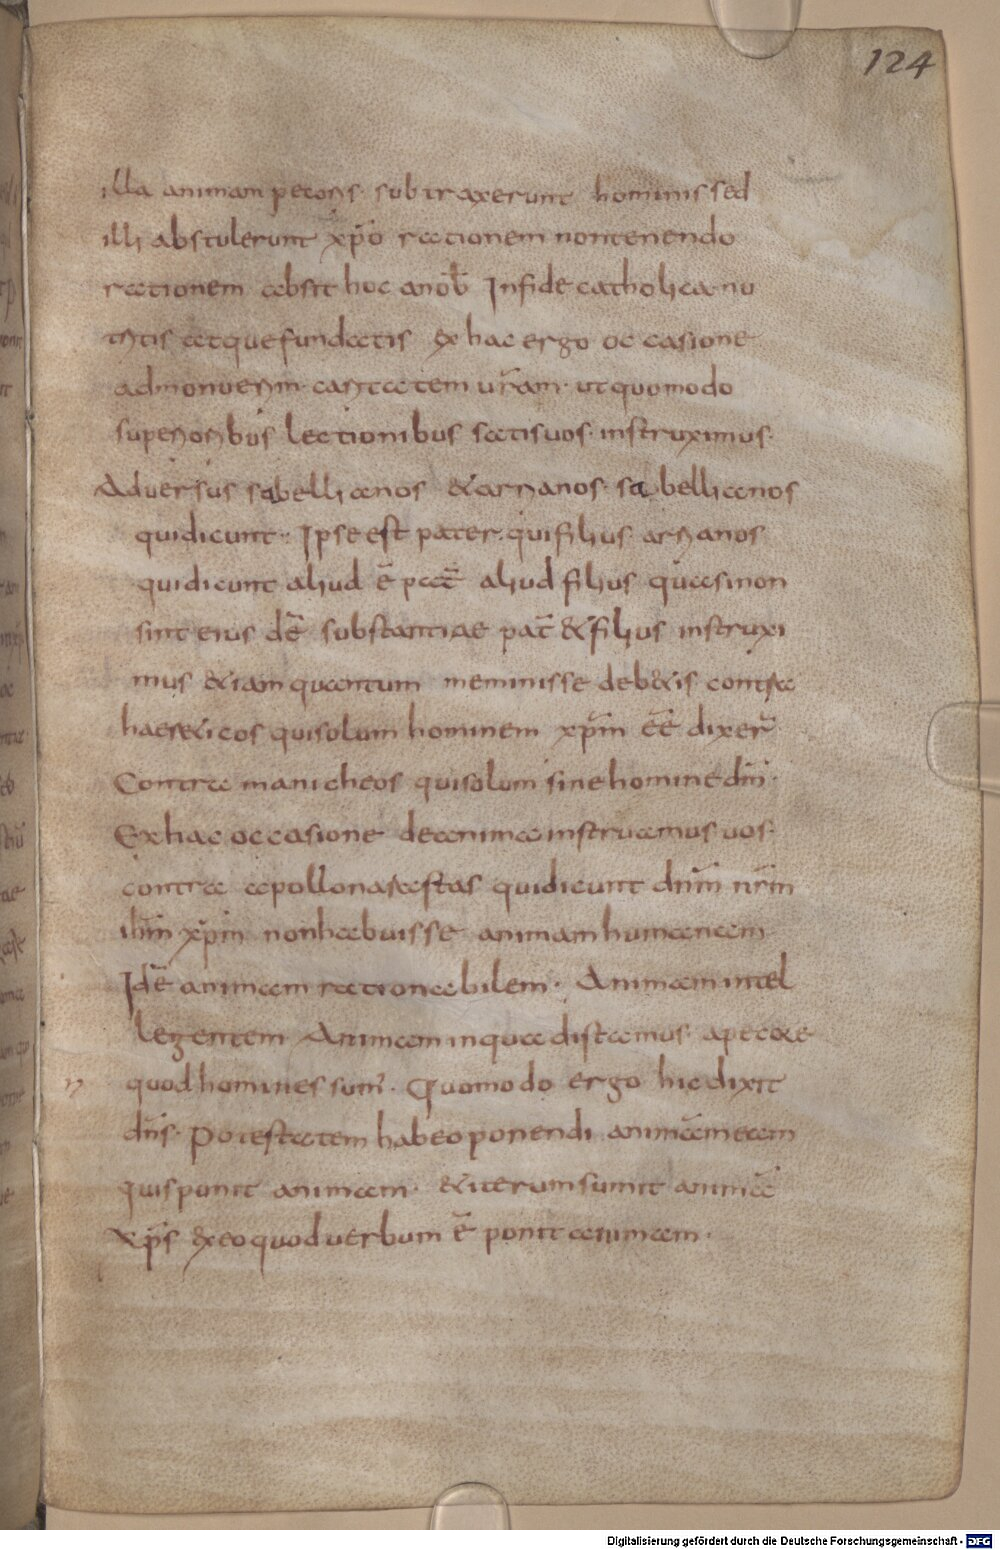 124
illa animam pecoris · subtraxerunt hominis sed
illi abstulerunt xp̄o rationem non tenendo
rationem absit hoc a nob̄ Infide catholica nu
tritis atque fundatis ex hac ergo occasione
admonuerim · caritatem ur̄am · ut quomodo
superioribus lectionibus satis uos · instruximus ·
Aduersus sabellianos &arrianos · sabellianos
qui dicunt · Ipse est pater · qui filius arrianos
qui dicunt aliud ē pat̄ aliud filius quasi non
sint eius dē substantiae pat̄ & filius instruxi
mus &iam quantum meminisse deb&is contra
haer&icos qui solum hominem xp̄m eē dixer̄
Contra manicheos qui solum sine homine dm̄ ·
Ex hac occasione de anima instruamus uos ·
contra apollonaristas qui dicunt dnm̄ nrm̄
ihm̄ xp̄m non habuisse animam humanam
Idē animam rationabilem · Animam intel
legentem Animam in qua distamus · a pecore
quod homines sum̄ · Quomodo ergo hic dixit
dns̄ · Potestatem habeo ponendi animā meam
quis ponit animam · & iterum sumit animā
xp̄s &x eo quod uerbum ē ponit animam ·
Digitalisierung gefördert durch die Deutsche Forschungsgemeinschaft - DFG